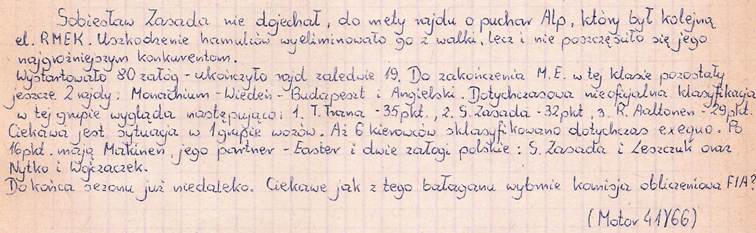 Sobiesław Zasada nie dojechał, do mety rajdu o puchar Alp, który był kolejną
el. RMEK. Uszkodzenie hamulców wyeliminowało go z walki, lecz i nie poszczęściło się jego
najgroźniejszym konkurentom.
Wystartowało 80 załóg - ukończyło rajd zaledwie 19. Do zakończenia M.E. w tej klasie pozostały
jeszcze 2 rajdy: Monachium - Wiedeń - Budapeszt i Angielski. Dotychczasowa nieoficjalna klasyfikacja
w tej grupie wygląda następująco: 1. T. Trana - 35pkt., 2. S. Zasada - 32pkt, 3. R. Aaltonen - 29pkt.
Ciekawa jest sytuacja w 1 grupie wozów. Aż 6 kierowców sklasyfikowano dotychczas exequo. Po
16pkt. mają Makinen, jego partner - Easter i dwie załogi polskie: S. Zasada i Leszczuk oraz
Nytko i Wojczaczek.
Do końca sezonu już niedaleko. Ciekawe jak z tego bałaganu wybrnie komisja obliczeniowa FIA?
(Motor 41/66)